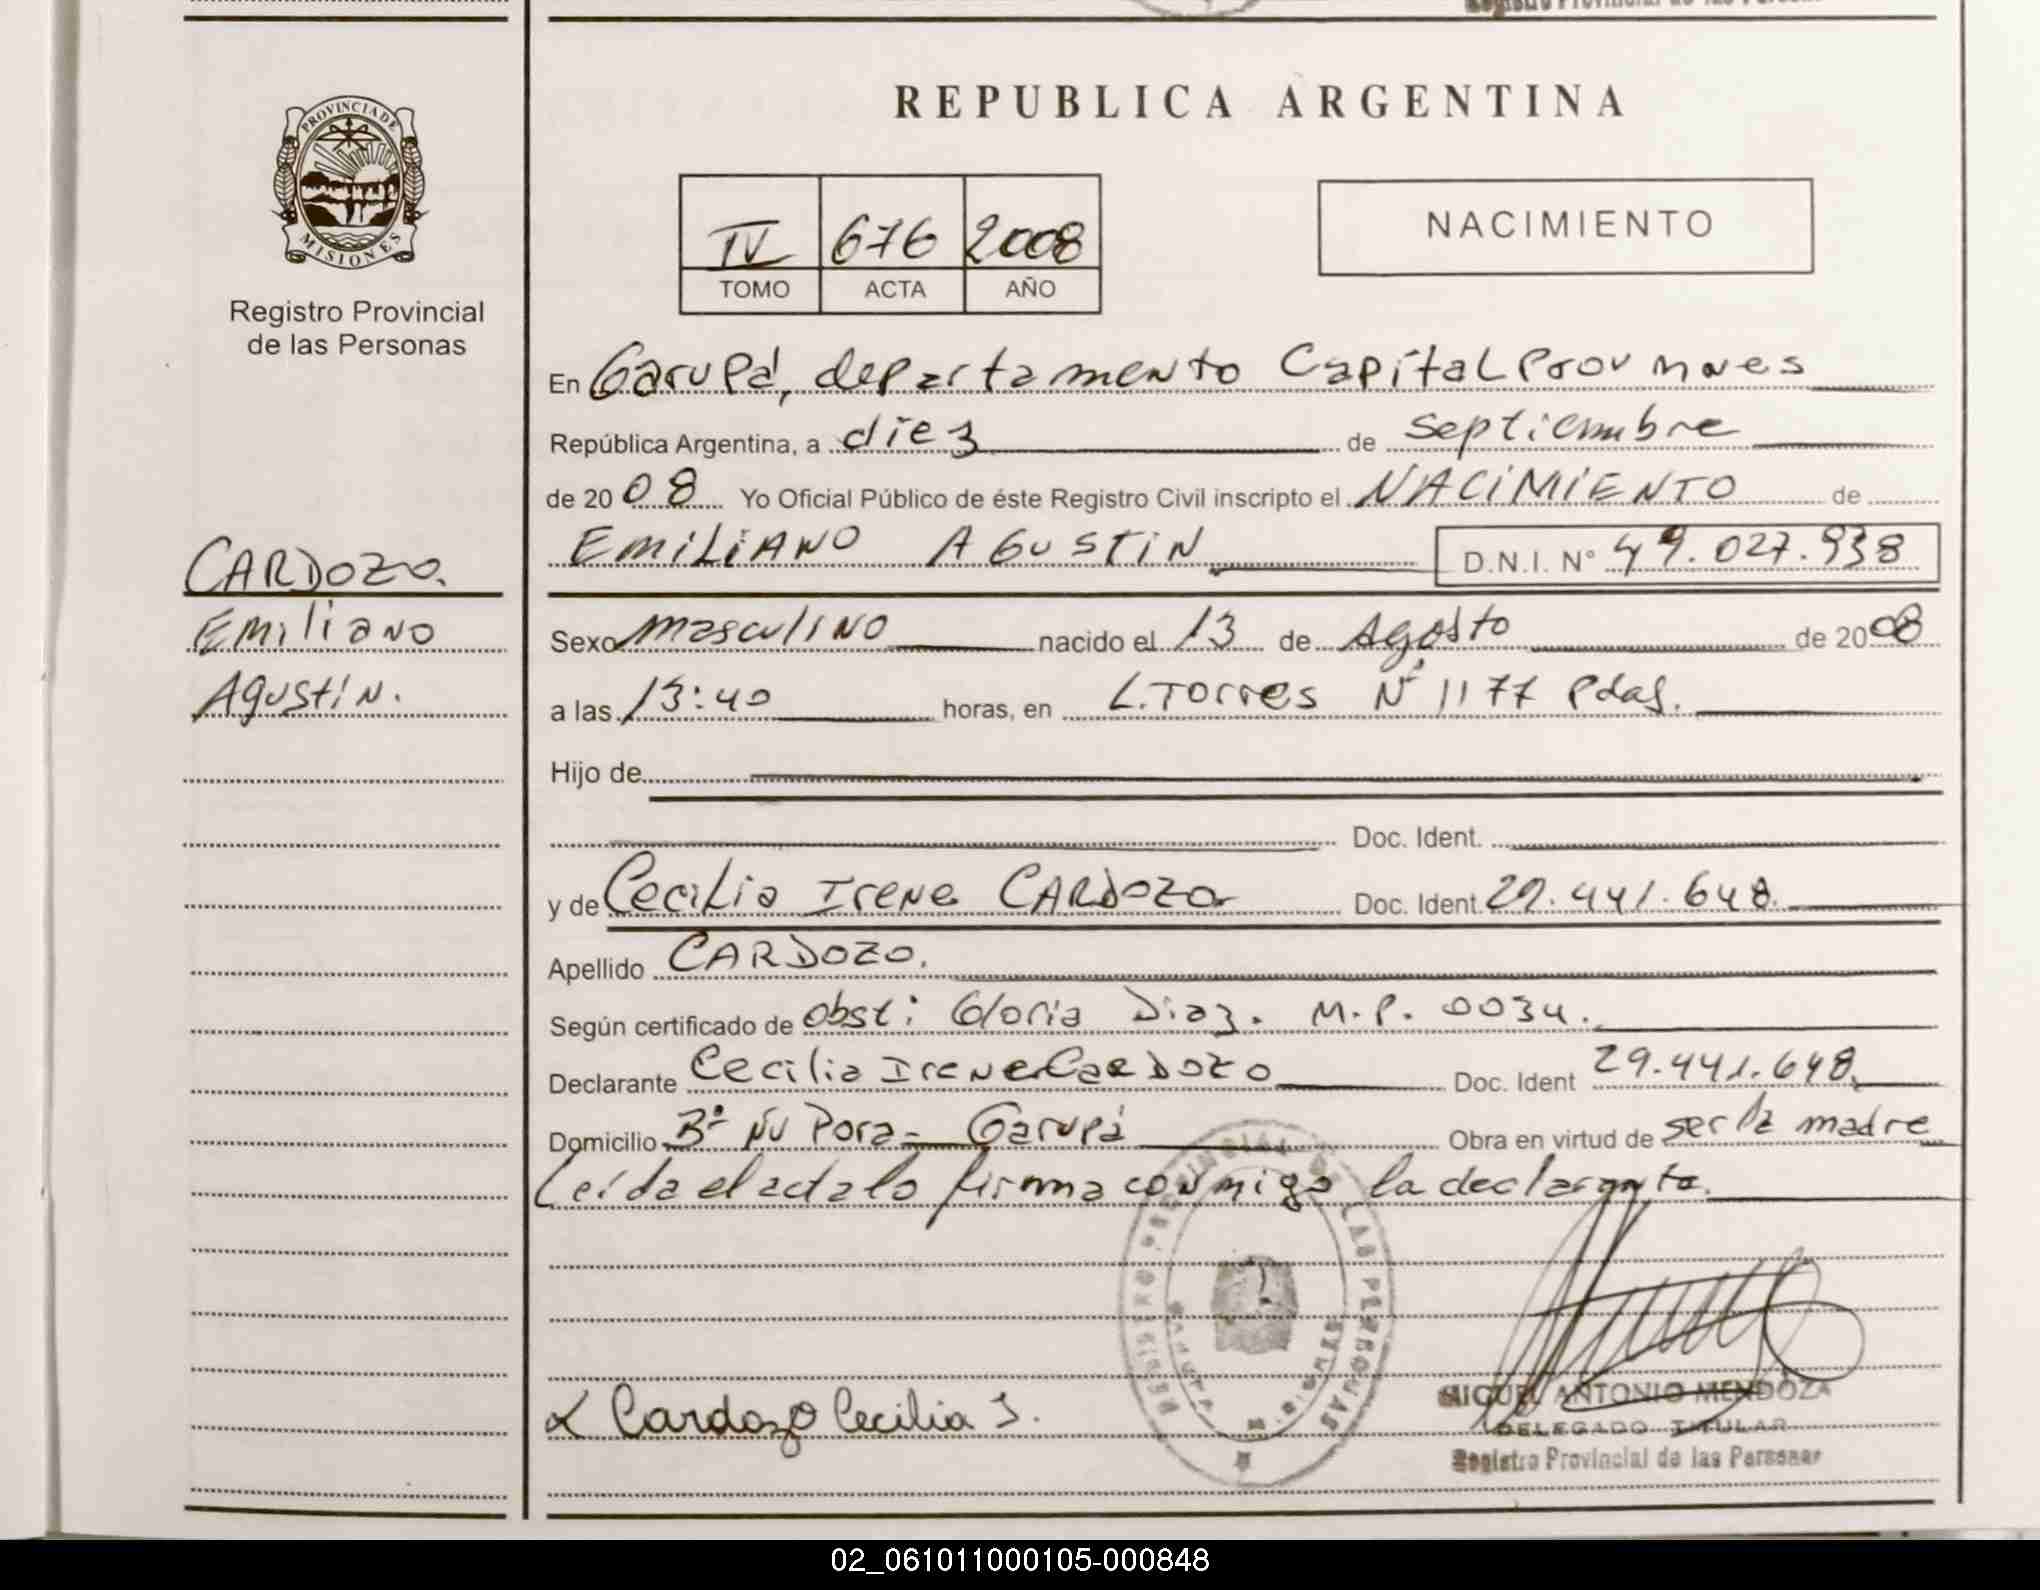 REPUBLICA ARGENTINA
PROVINCIA DE
MISIONES
Registro Provincial
de las Personas
IV 676 2008
TOMO ACTA AÑO
NACIMIENTO
En Garupá, departamento Capital Prov
República Argentina, a diez de septiembre
de 2008 Yo Oficial Público de éste Registro Civil inscripto el NACIMIENTO de
EMILIANO AGUSTIN D.N.I. N° 49.027.938
CARDOZO.
Emiliano
Agustin.
Sexo masculino nacido el 13 de Agosto de 2008
a las 13:40 horas, en L. Torres N° 1177 Pdas.
Hijo de
Doc. Ident.
y de Cecilia Irene CARDOZO Doc. Ident. 29.441.648.
Apellido CARDOZO.
Según certificado de obst: Gloria Diaz. M.P. 0034.
Declarante Cecilia Irene Cardozo Doc. Ident 29.441.648.
Domicilio B° Ñu Pora - Garupá Obra en virtud de ser la madre
Leída el acta lo firma conmigo la declarante.
REGISTRO PROVINCIAL DE LAS PERSONAS
Cardozo Cecilia I.
MIGUEL ANTONIO MENDOZA
DELEGADO TITULAR
Registro Provincial de las Personas
02_061011000105-000848